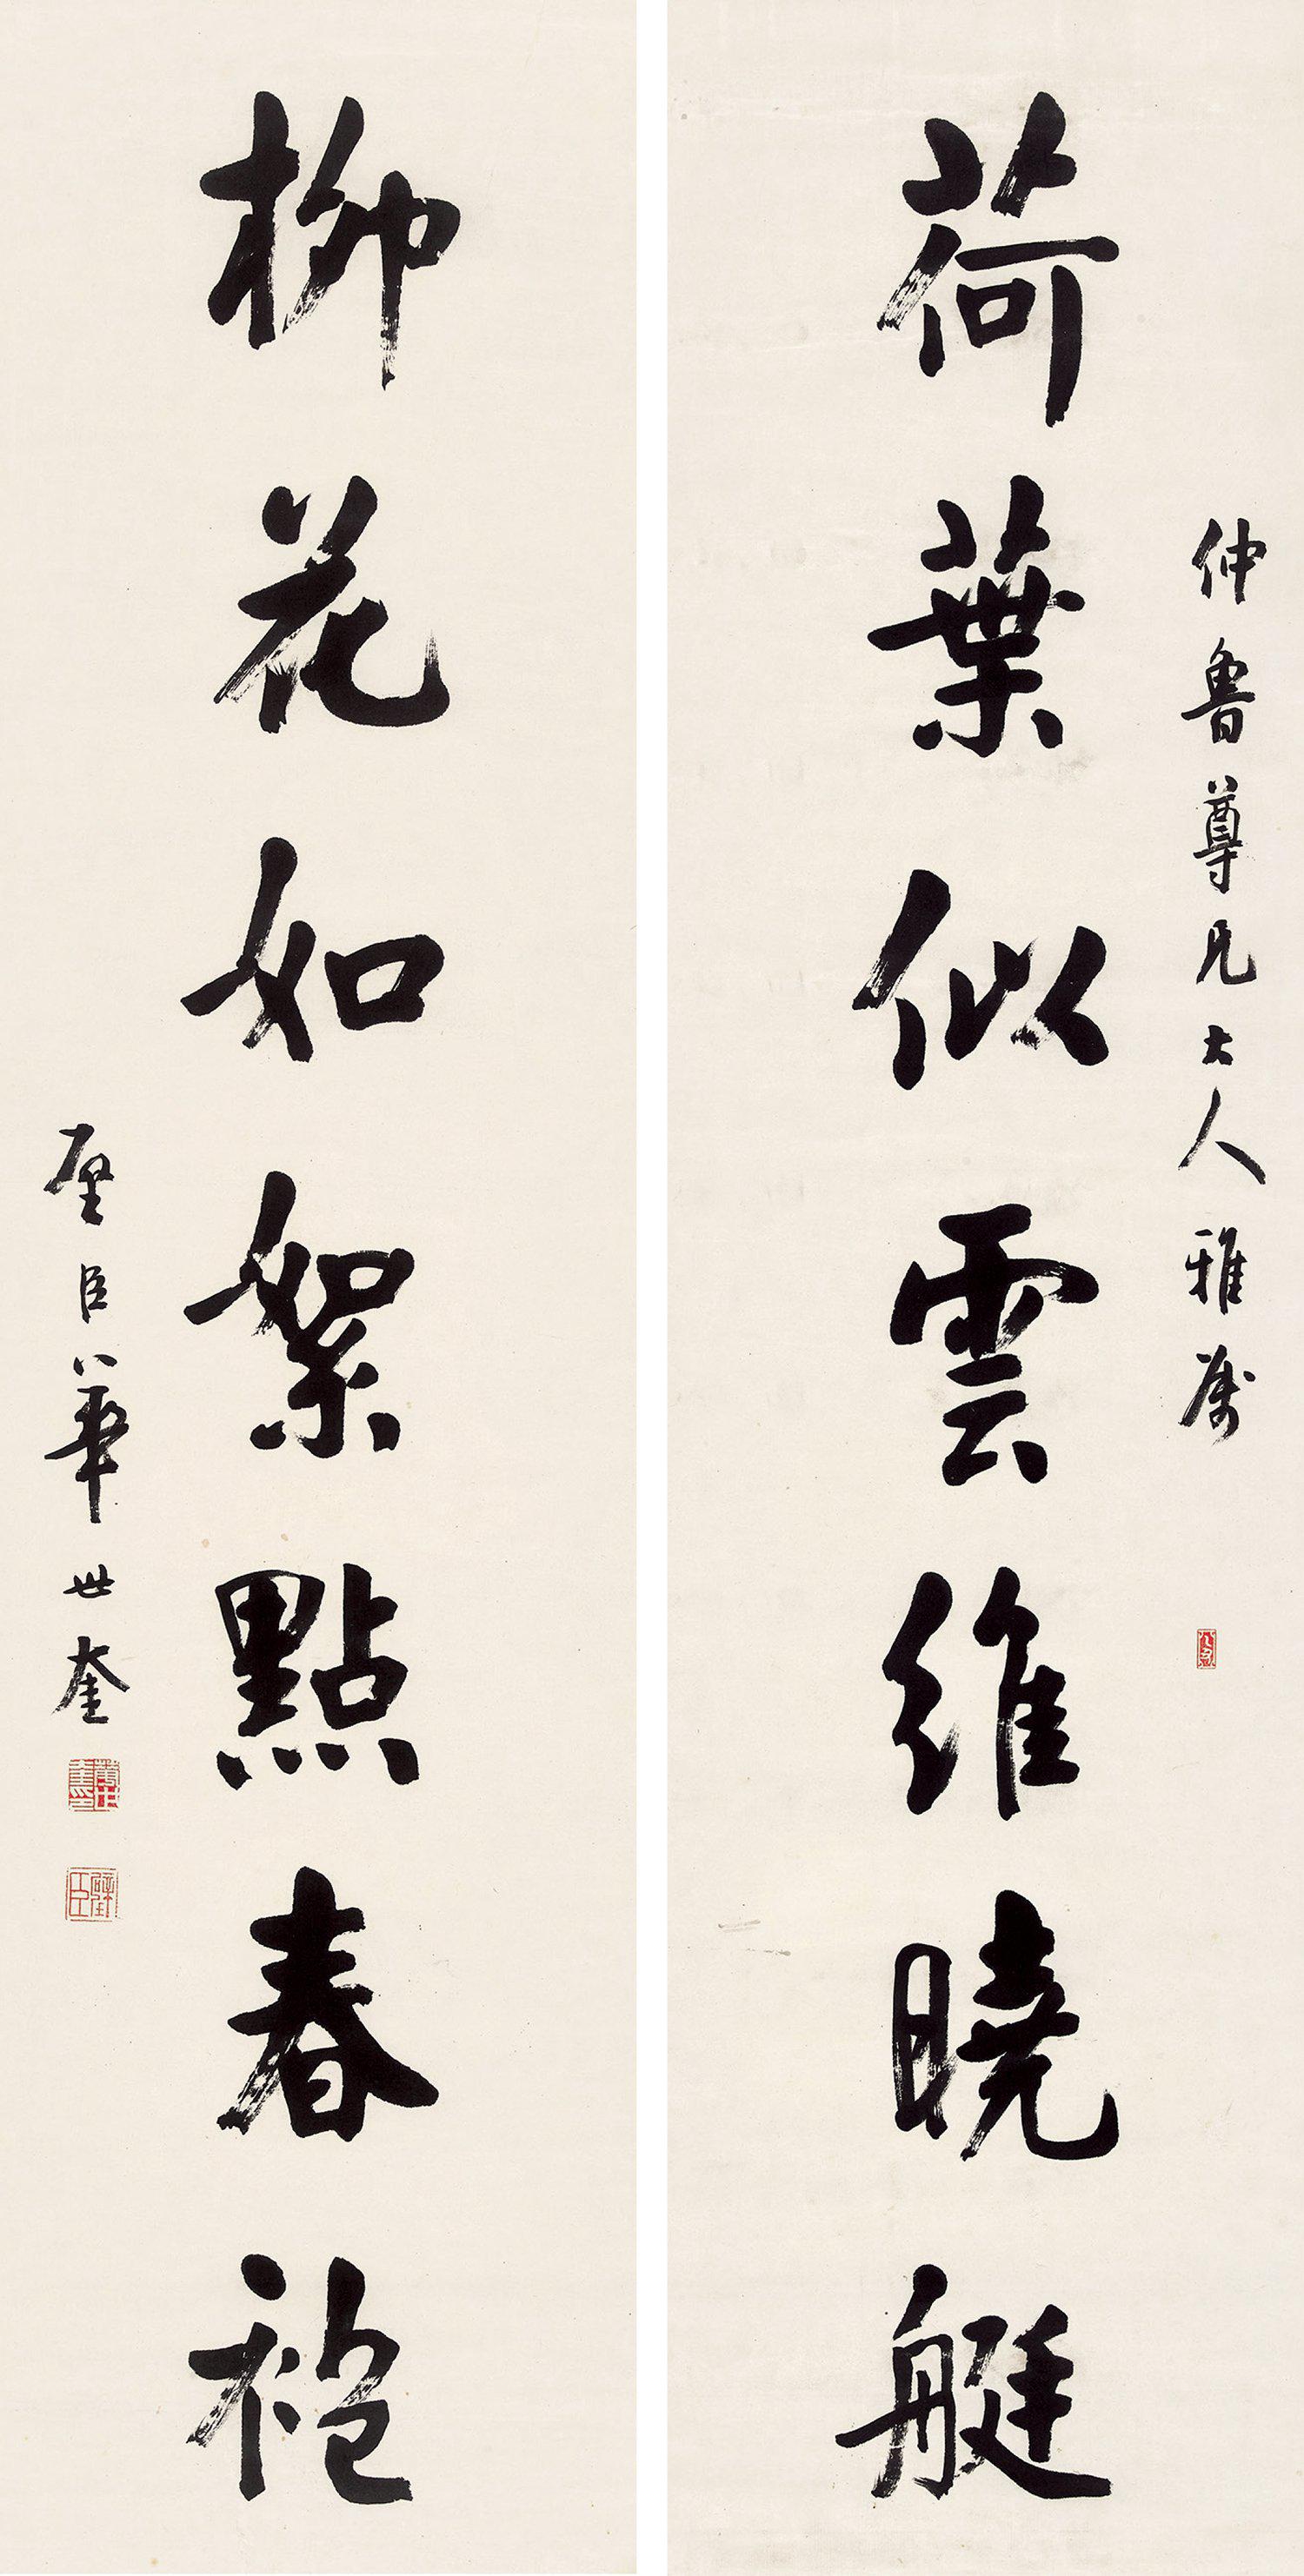 仲魯尊兄大人雅屬
荷葉似雲維曉艇
柳花如絮點春袍
壁臣華世奎
華世奎印
璧臣